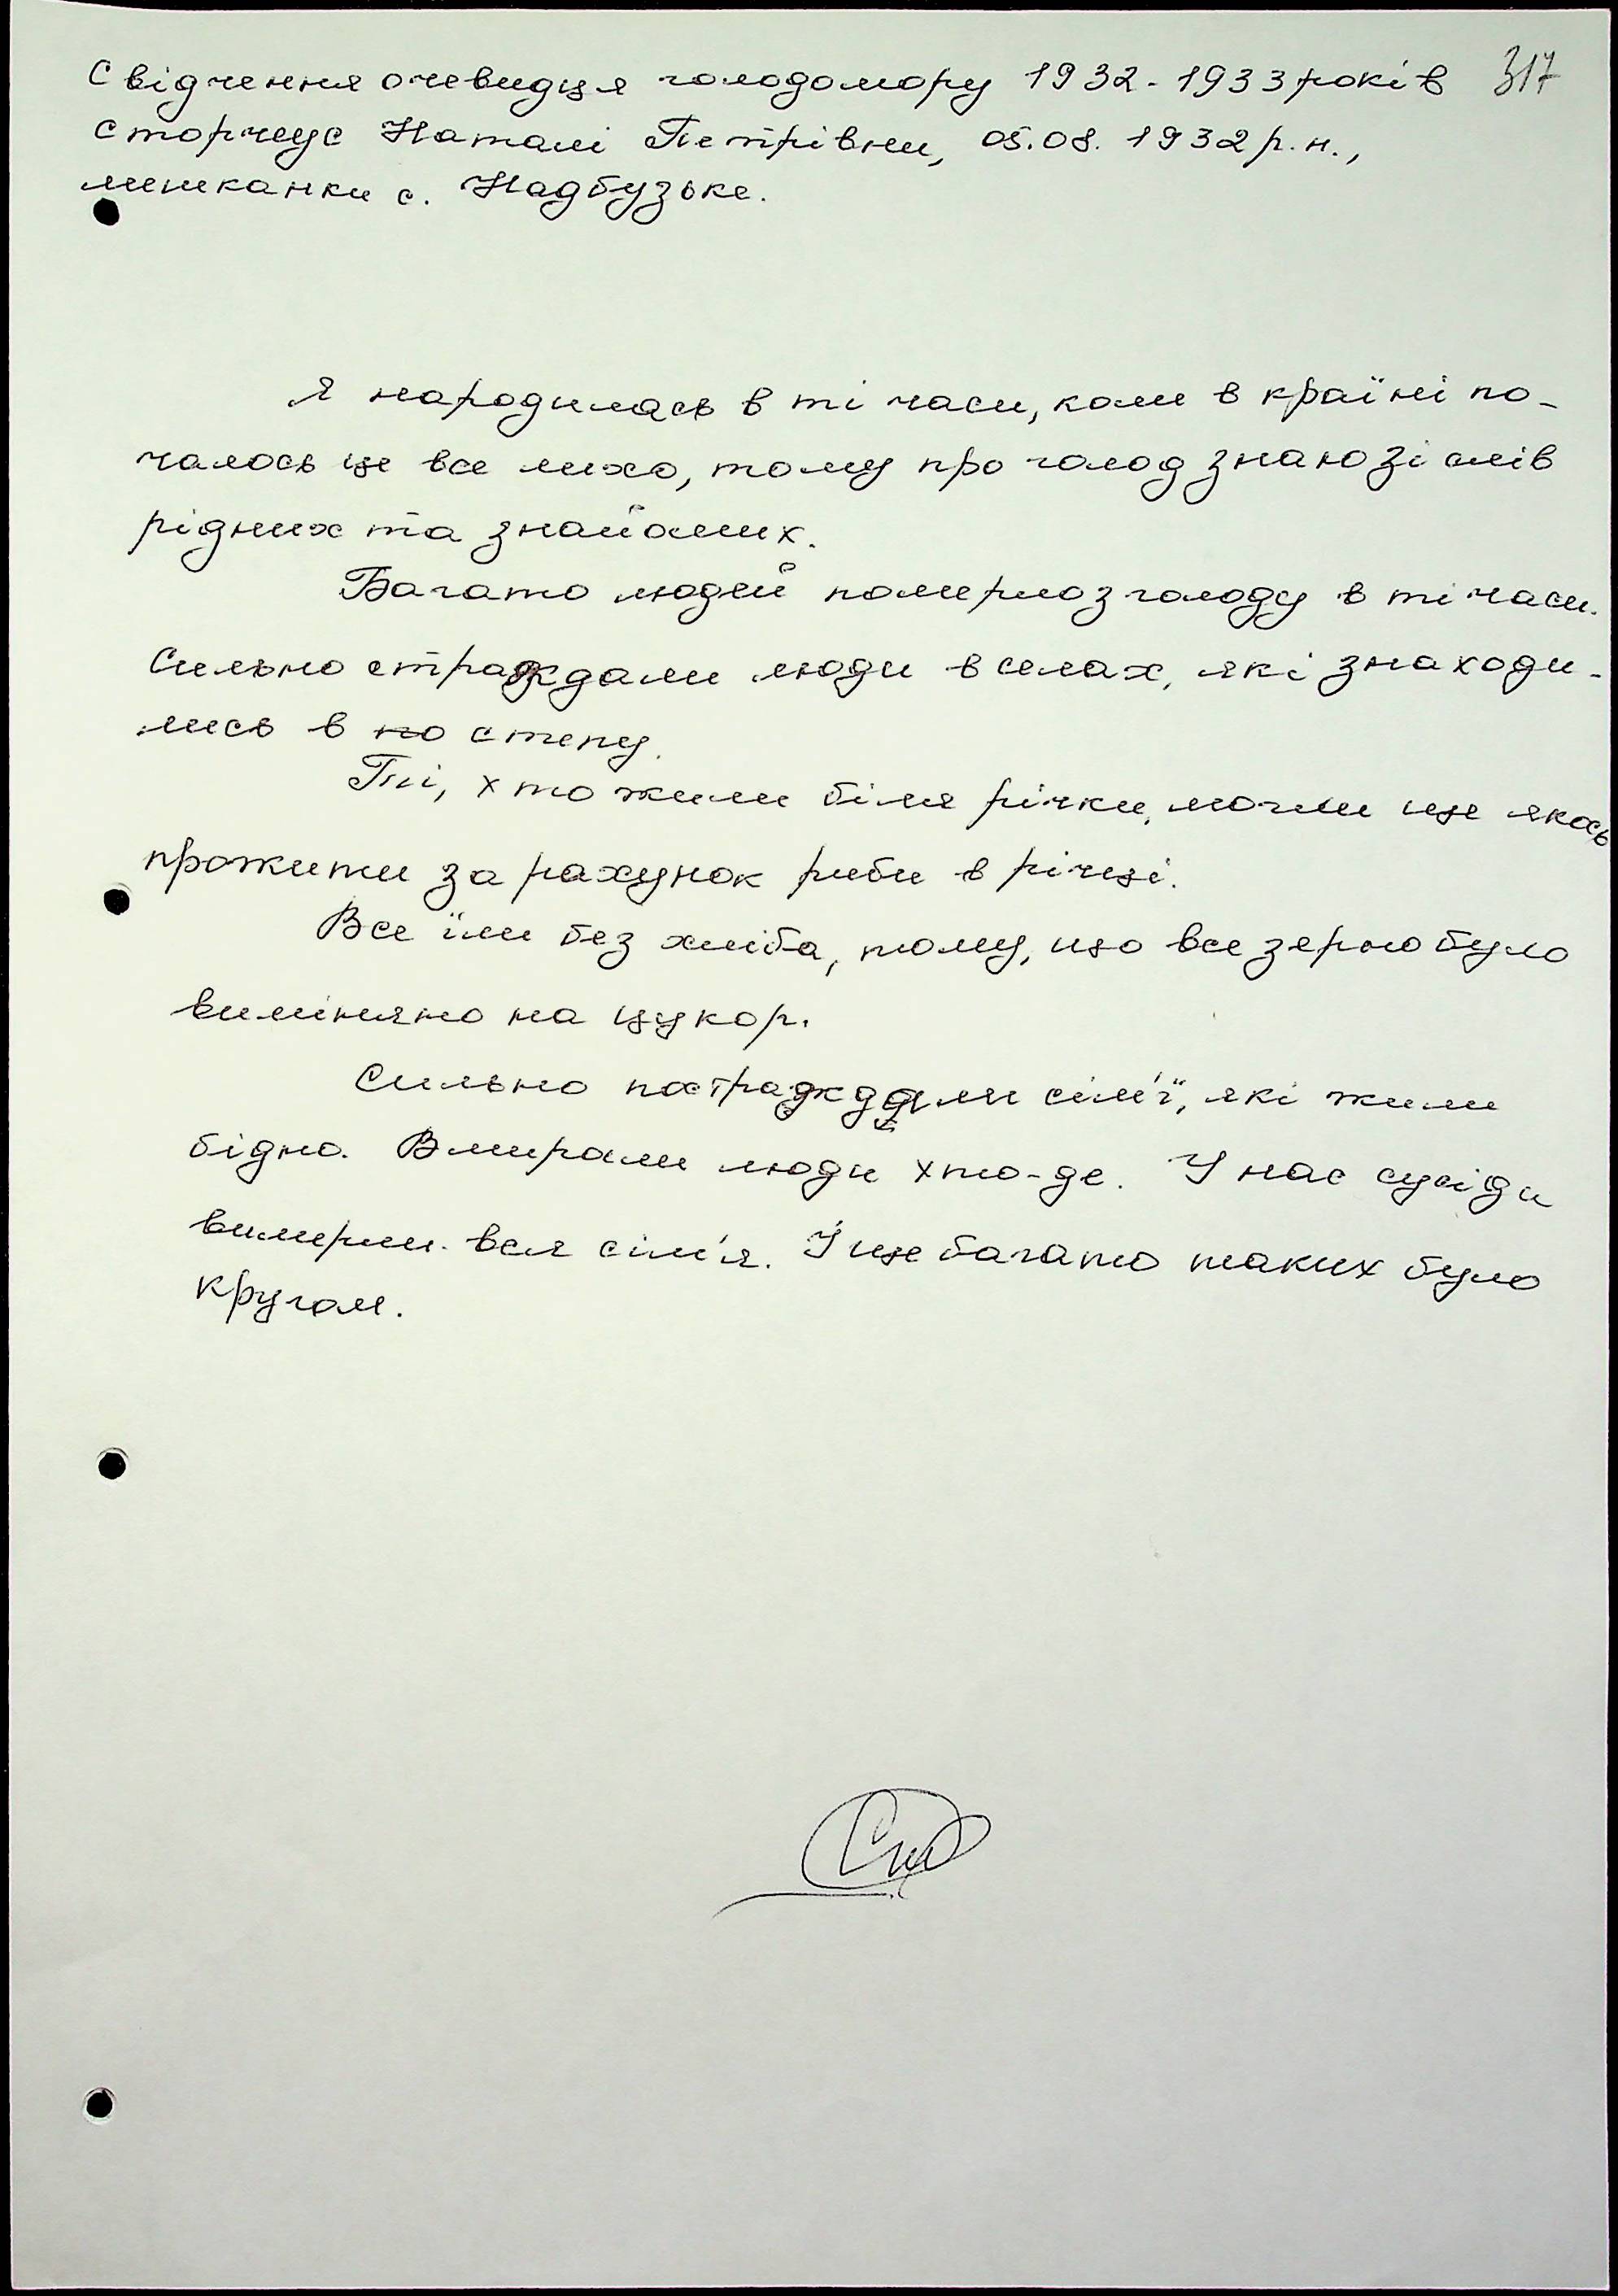 Свідчення очевидця голодомору 1932-1933 років 317
Сторчеус Наталі Петрівни, 05.08.1932 р.н.,
мешканки с. Надбузьке.
Я народилась в ті часи, коли в країні по-
чалось це все лихо, тому про голод знаю зі слів
рідних та знайомих.
Багато людей померло з голоду в ті часи.
Сильно страждали люди в селах, які знаходи-
лись в по степу.
Ті, хто жили біля річки, могли ще якось
прожити за рахунок риби в річці.
Все їли без хліба, тому, що все зерно було
виміняно на цукор.
Сильно постраждали сім'ї, які жили
бідно. Вмирали люди хто-де. У нас сусіди
вимерли вся сім'я. І ще багато таких було
кругом.